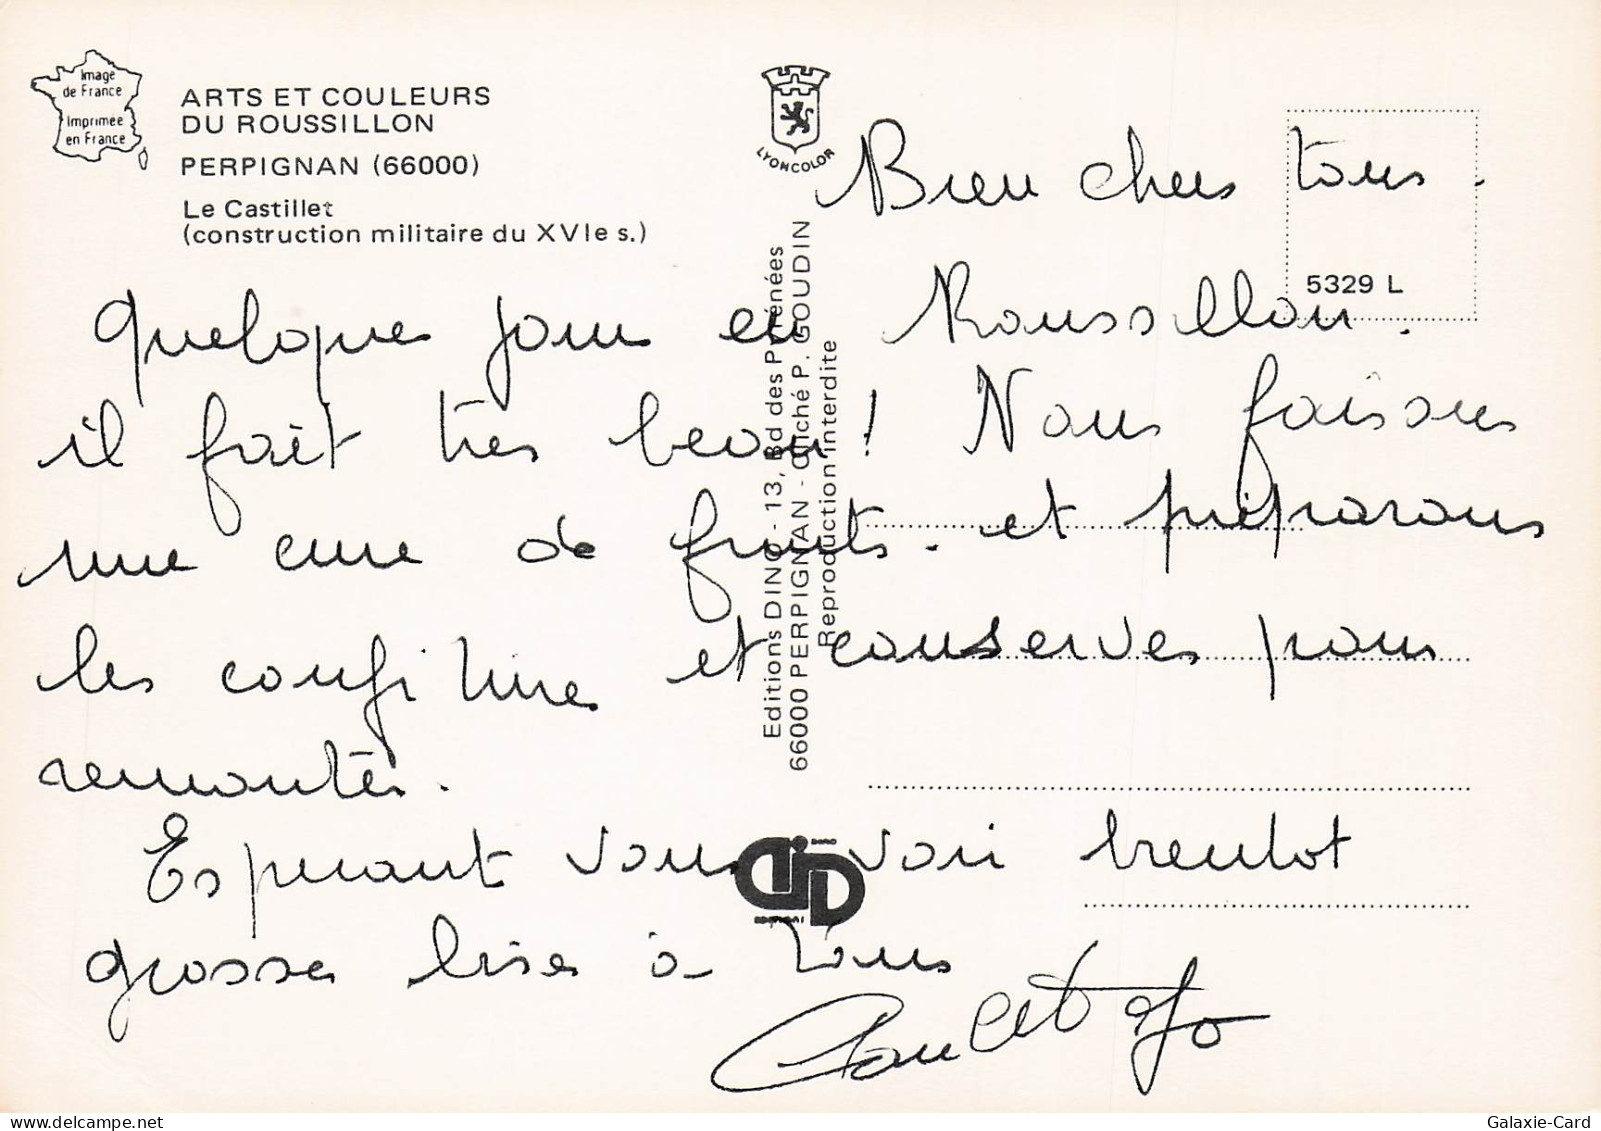 Image
de France
Imprimée
en France
ARTS ET COULEURS
DU ROUSSILLON
PERPIGNAN (66000)
Le Castillet
(construction militaire du XVIe s.)
LYONCOLOR
5329 L
Editions DINO - 13, Bd des Pyrénées
66000 PERPIGNAN - Cliché P. GOUDIN
Reproduction interdite
Bien chers tous.
Quelques jours en Roussillon.
il fait très beau! Nous faisons
une cure de fruits. et préparons
les confiture et conserves pour
remonter.
Esperant vous voir bientot
grosses bises à tous
Galaxie-Card